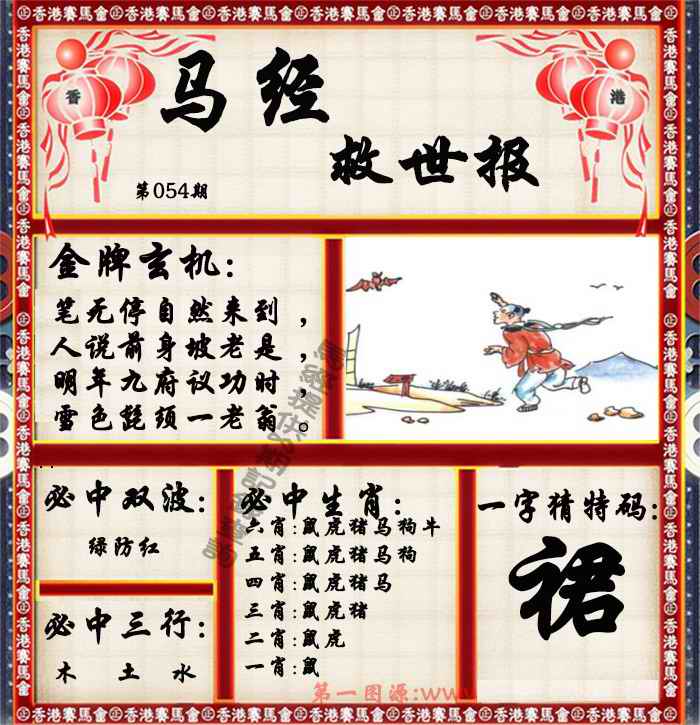 香 港
马经
救世报
第054期
金牌玄机：
笔无停自然来到，
人说前身坡老是，
明年九府议功时，
雪色髭须一老翁。
必中双波：
绿防红
必中三行：
木 土 水
必中生肖：
六肖：鼠虎猪马狗牛
五肖：鼠虎猪马狗
四肖：鼠虎猪马
三肖：鼠虎猪
二肖：鼠虎
一肖：鼠
一字猜特码：
裙
第一图源：www
香港賽馬會